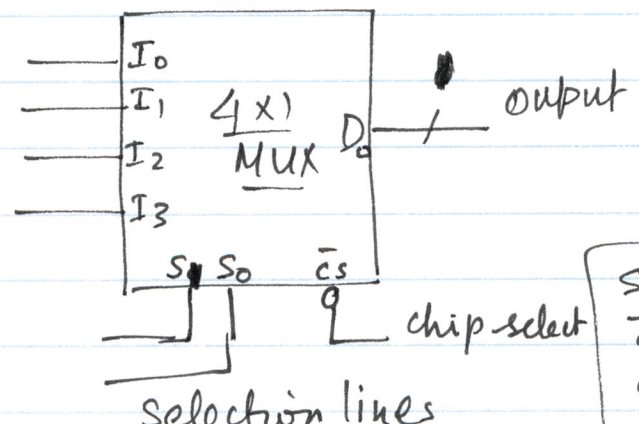 I0
I1
I2
I3
4x1
MUX
D0
ouput
S0
C̅S̅
chip select
selection lines